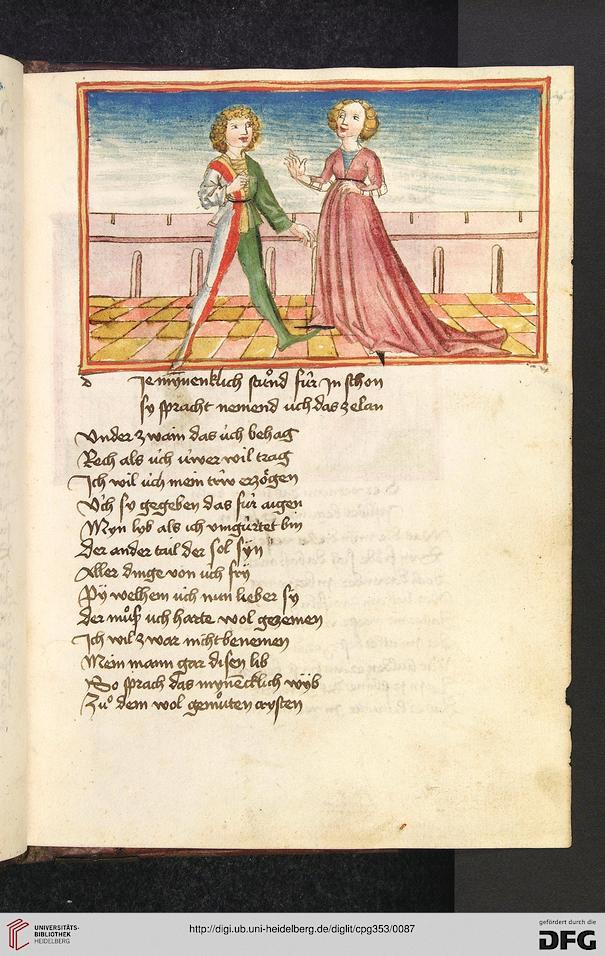 d Je mynenklich stuͦnd fuͤr in schon
sy spracht nemend uch das zelan
Vnder zwain das uch behag
Rech als uch uwer wil trag
Ich wil uch mein trw erzoͤgen
Vch sy gegeben das fuͤr aigen
Myn lyb als ich vmguͤrtet bin
Der ander tail der sol syn
Aller dinge von uch fry
By welhem uch nun lieber sy
der muͦsß uch harte wol gezemen
Ich wil zwar nicht benemen
Mein mann gar disen lib
So sprach das mynecklich wyb
Zuͦ dem wol gemuͦten crysten
UNIVERSITÄTS-
BIBLIOTHEK
HEIDELBERG
http://digi.ub.uni-heidelberg.de/diglit/cpg353/0087
gefördert durch die
DFG